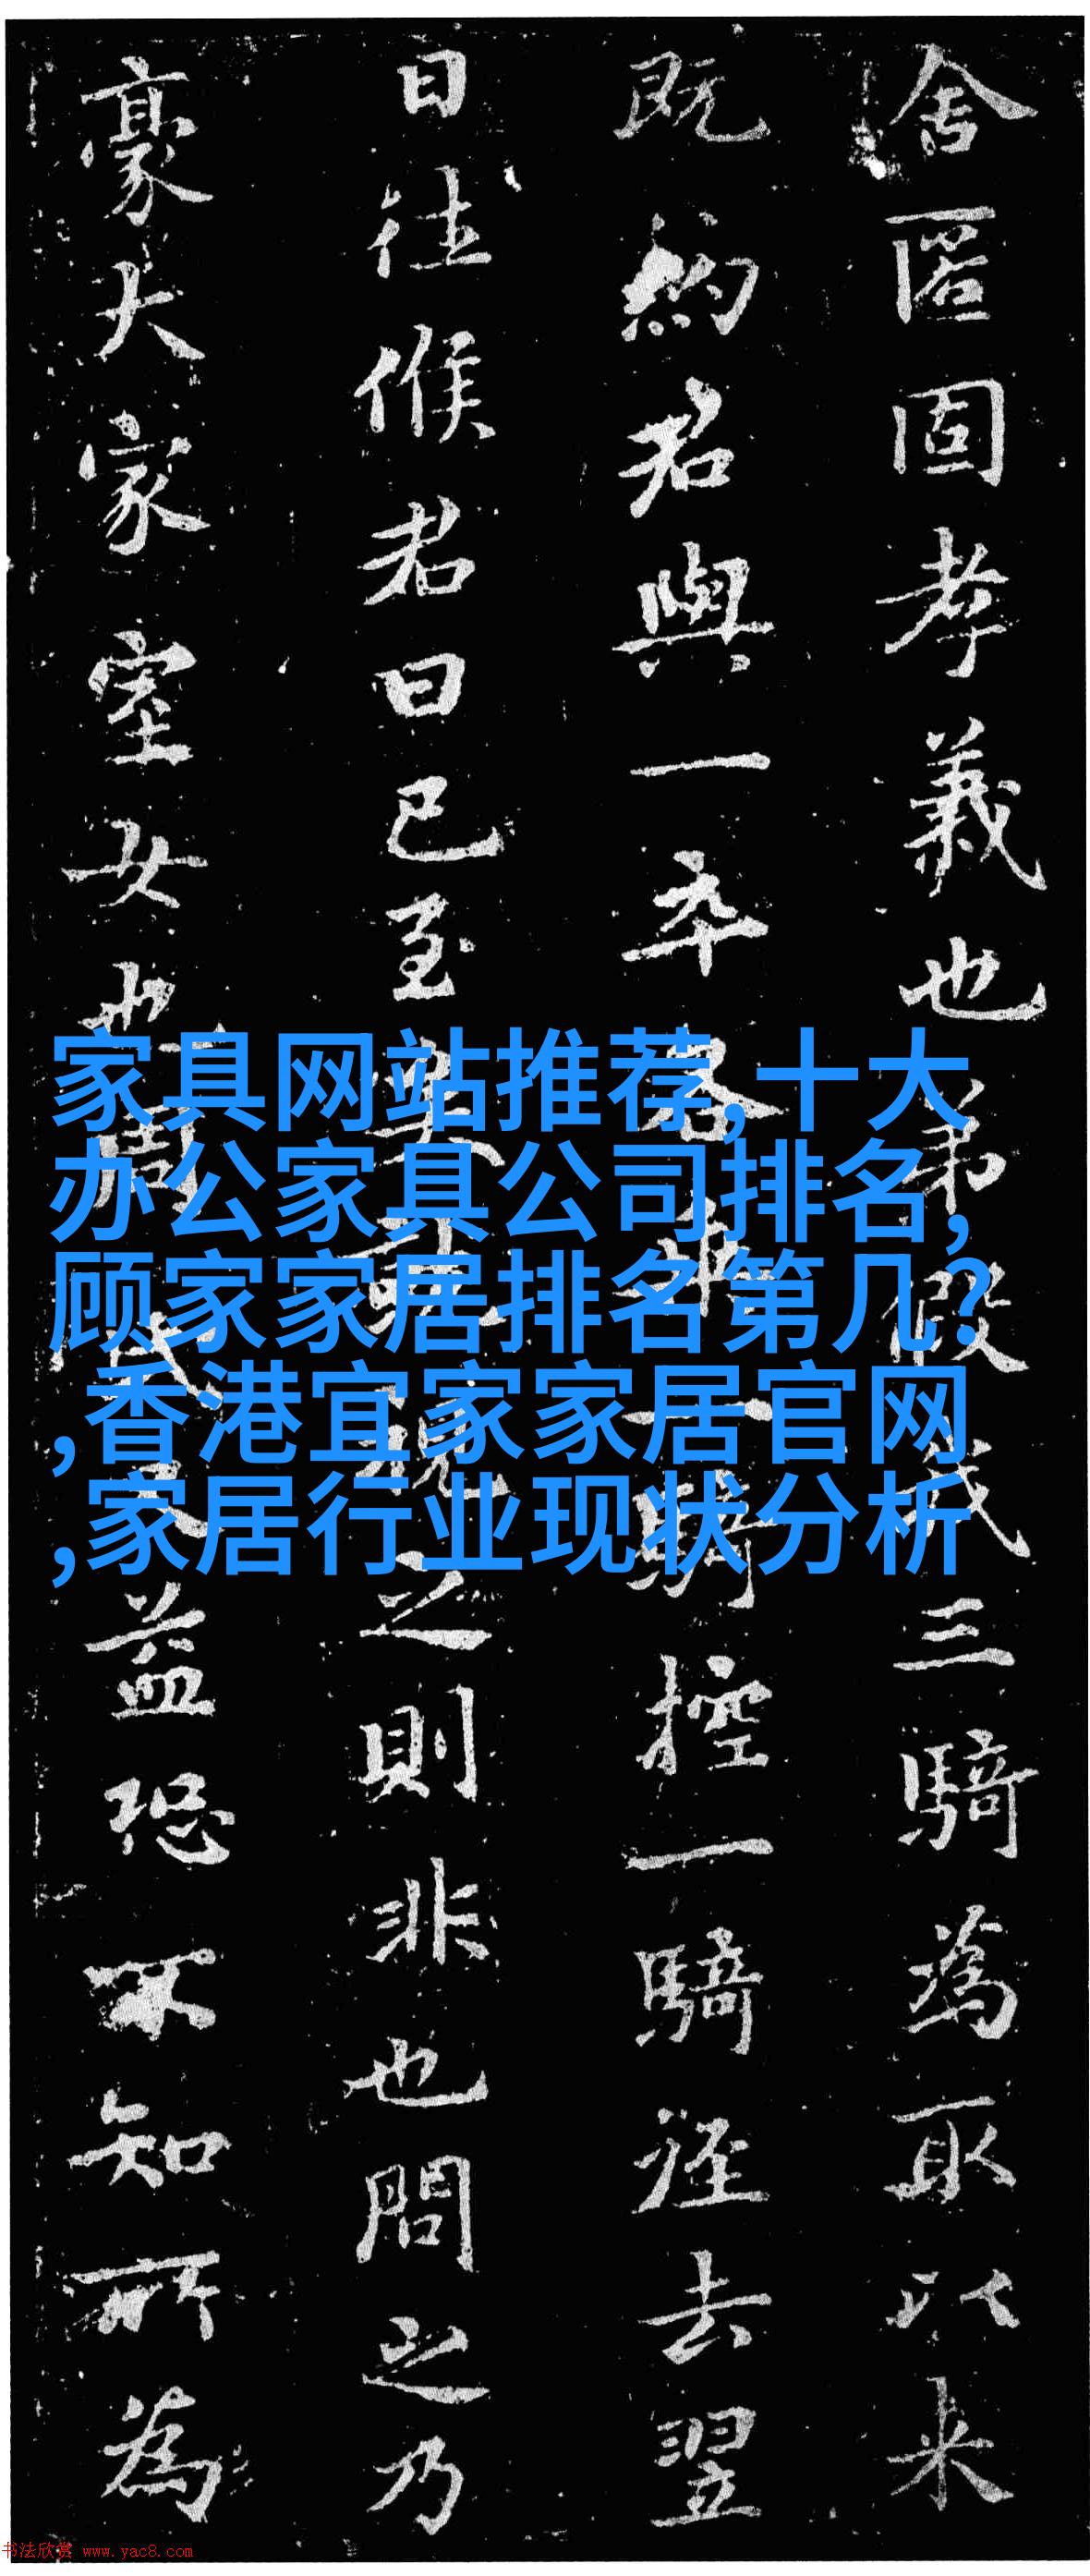 舍匿固孝義也弟假我三騎為取以来
既約名與一卒 一騎控一騎徑去翌
日往候名曰已至 之則非也問之乃
豪大家室女也 益恐不知所為
家具网站推荐,十大
办公家具公司排名,
顾家家居排名第几?
,香港宜家家居官网
,家居行业现状分析
书法欣赏 www.yac8.com